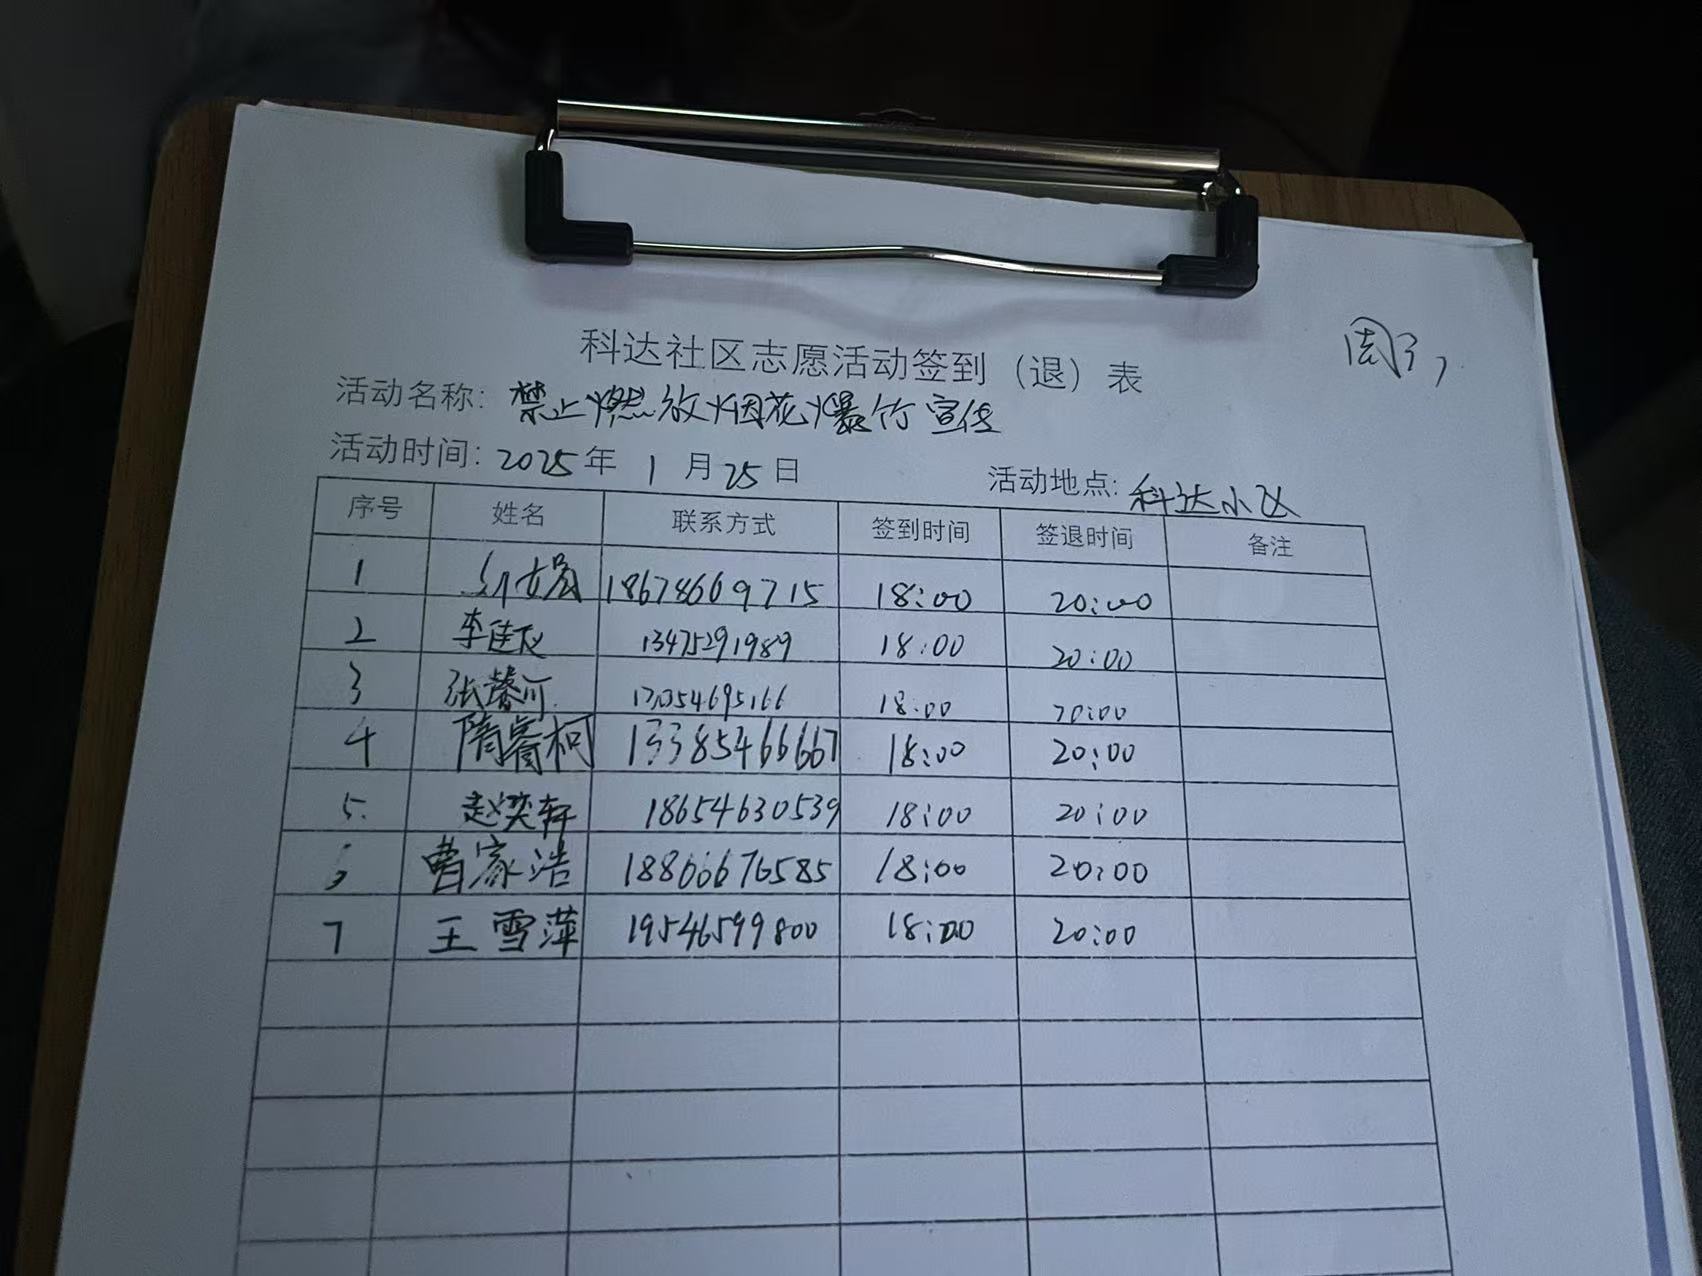 科达社区志愿活动签到（退）表
活动名称: 禁止燃放烟花爆竹宣传
活动时间: 2025年 1 月 25 日 活动地点: 科达小区
序号 姓名 联系方式 签到时间 签退时间 备注
1 18678669715 18:00 20:00
2 李佳仪 13475291989 18:00 20:00
3 张馨可 18:00 20:00
4 隋睿柯 13385466667 18:00 20:00
5. 赵奕轩 18654630539 18:00 20:00
曹家浩 18866676585 18:00 20:00
7 王雪萍 19546599800 18:00 20:00